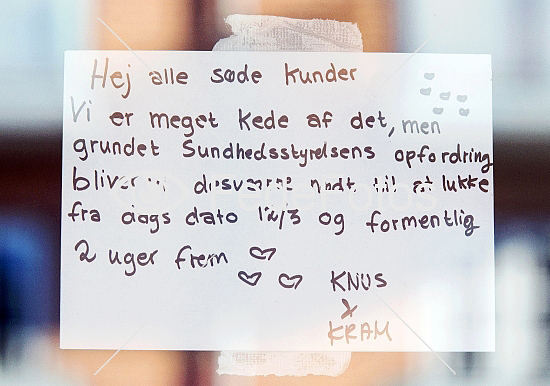 Hej alle søde kunder
Vi er meget kede af det, men
grundet Sundhedsstyrelsens opfordring
bliver vi desværre nødt til at lukke
fra dags dato 12/3 og formentlig
2 uger frem
KNUS
&
KRAM